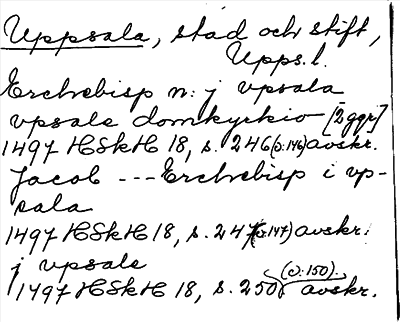 Uppsala, stad och stift,
Upps.l.
Erchebisp n: j vpsala
vpsale domkyrkio [2 ggr]
1497 HSkH 18, s. 246 (o: 146) avskr.
Jacob --- Erchebisp i vp-
sala
1497 HSkH 18, s. 247 (o: 147) avskr.
j vpsale
(o: 150).
1497 HSkH 18, s. 250 avskr.